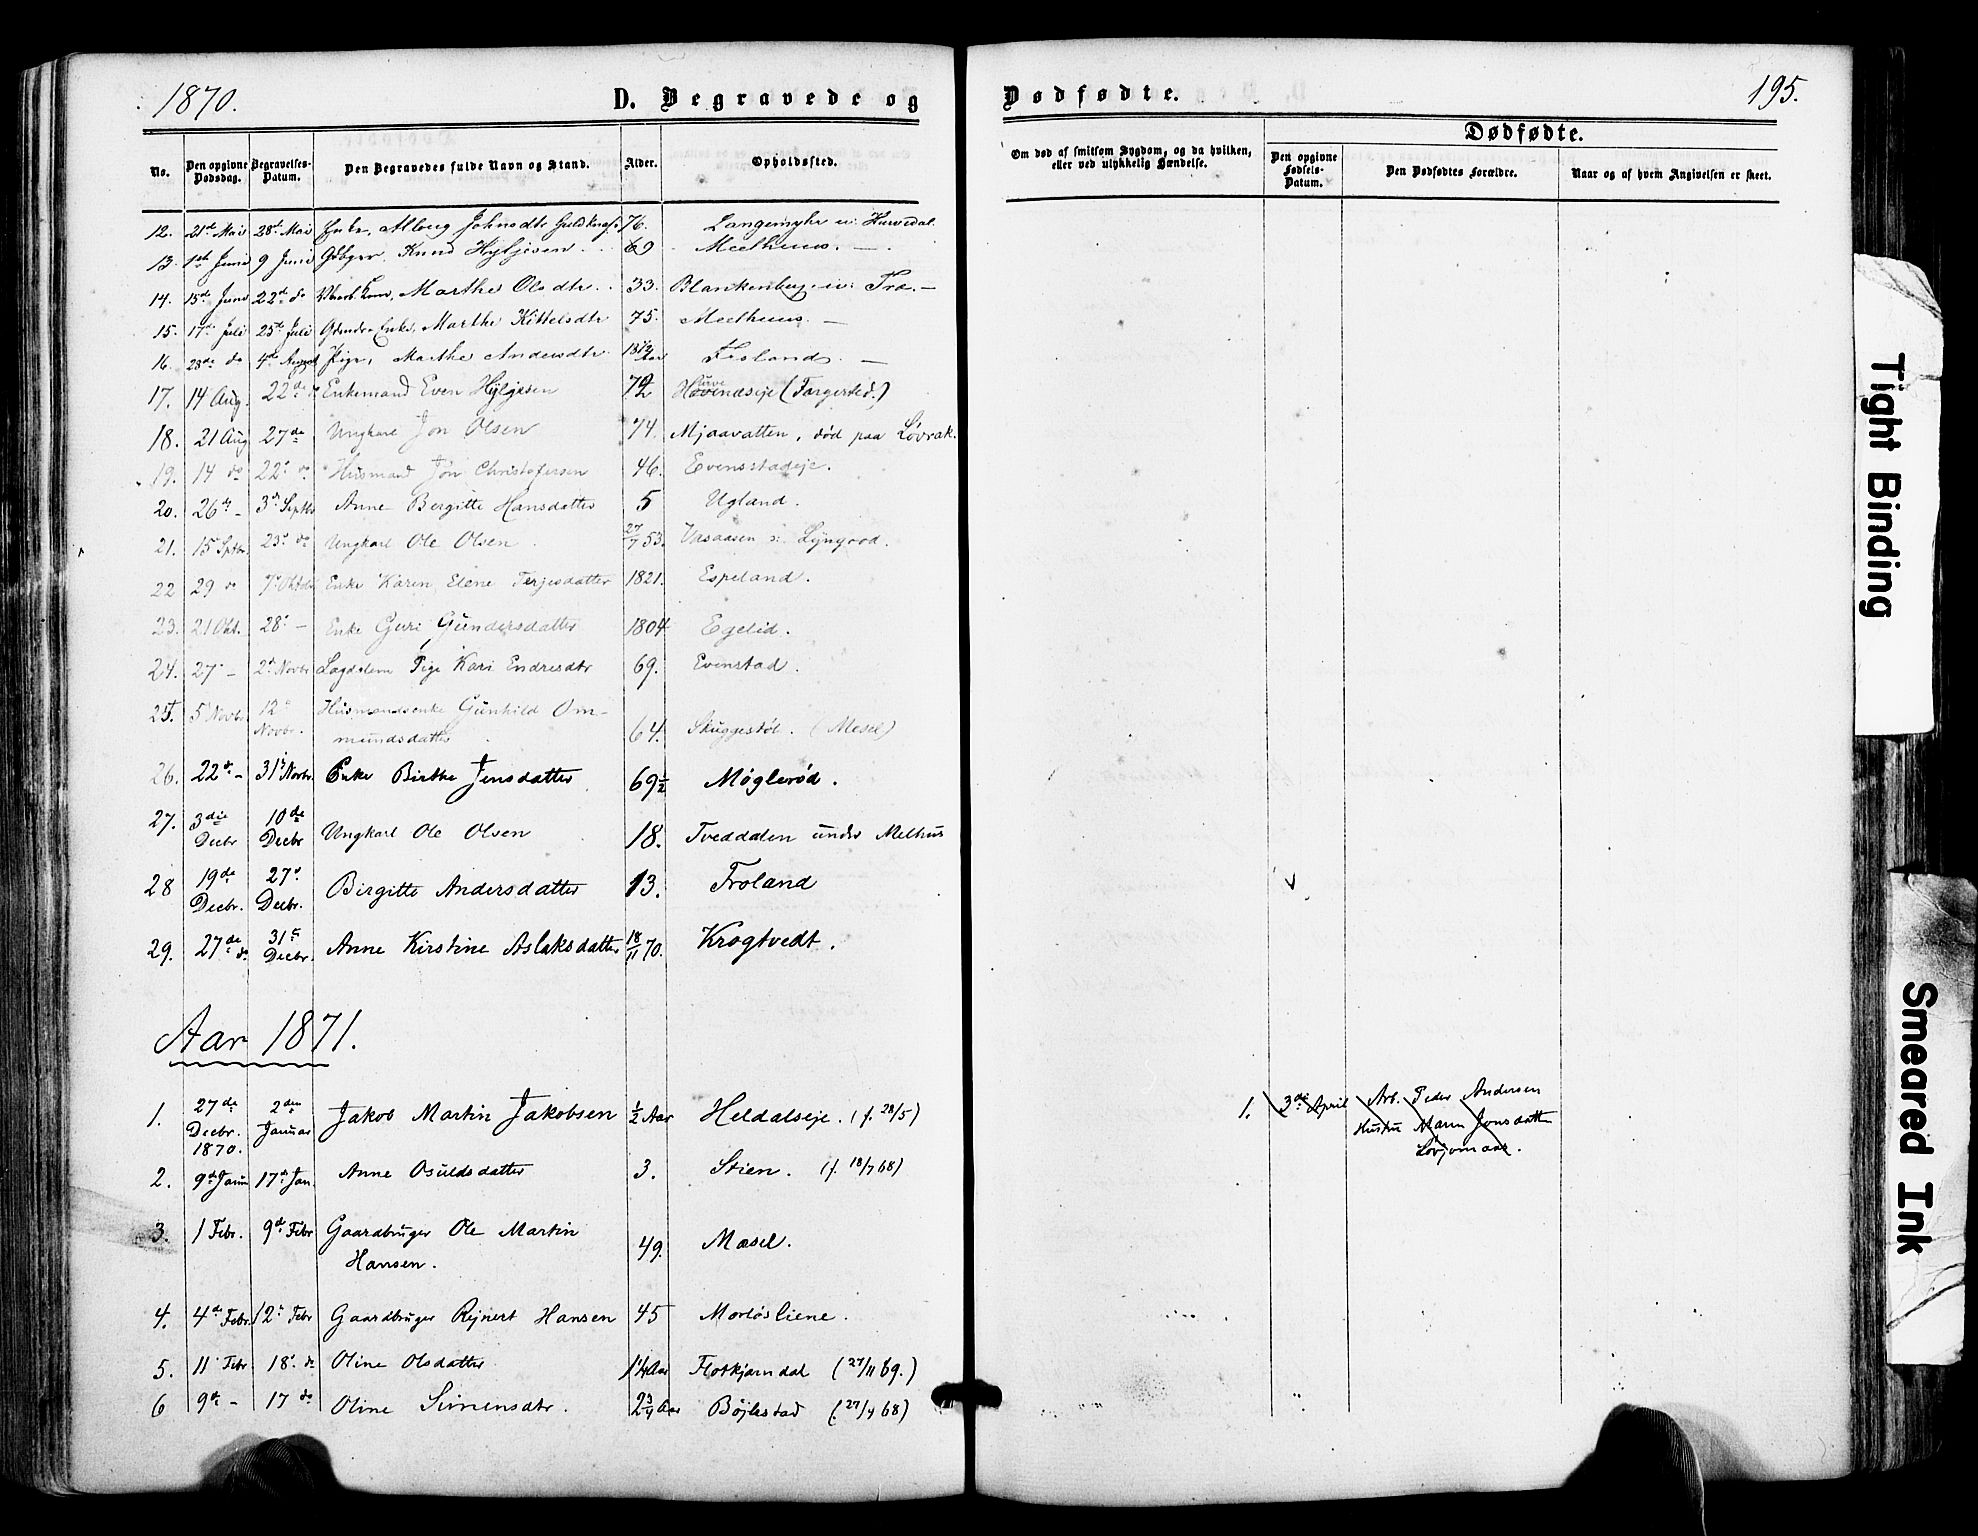 1870.
D. Begravede og
Dødfødte.
195.
No.
Den opgivne Dødsdag.
Begravelses-Datum.
Den Begravedes fulde Navn og Stand.
Alder.
Opholdssted.
Om død af smitsom Sygdom, og da hvilken, eller ved ulykkelig Hændelse.
Dødfødte.
Den opgivne Fødsels-Datum.
Den Dødfødtes Forældre.
Naar og af hvem Angivelsen er skeet.
12. 21de Mai 28de Mai Enke, Alborg Johnsdtr 76.
13. 1ste Juni 9 Juni Knud 69
14. 15de Juni 22de do Marthe Olsdtr. 33.
15. 17de Juli 25de Juli Marthe Kittelsdtr 75.
16. 28de do 4de August Pige, Marthe Andersdtr Frolands. —
17. 14 Aug. 22de Enkemand Even Hyljesen 72
18. 21 Aug 27de Ungkarl Jon Olsen 74. Mjaavatten, død paa Løvrak.
19. 14 do 22de do Husmand Jon Christofersen 46. Evensstadeje.
20. 26de - 3de Septbr Anne Bergitte Hansdatter 5 Ugland.
21. 15 Sptbr. 23de do Ungkarl Ole Olsen 27/7 53. Vasaasen
22 29 do 7de Oktober Enke Karen Elene Terjesdatter 1821. Espeland.
23. 21 Okt. 28de — Enke Guri Gundersdatter 1804 Egelid.
24. 27de - 2de Novbr Lægdslem Pige Kari Endresdtr 69. Evenstad.
25. 5 Novbr. 12te Novbr. Husmandsenke Gunhild Om-
mundsdatter 64. Skuggestøl. (Mesel)
26. 22de - 31te Novbr. Enke Birthe Jensdatter 69½ Møglerød.
27. 3die Decbr 10de Decbr Ungkarl Ole Olsen 18. Tveddalen under Melhus
28 19de Decbr. 27de Decbr. Birgitte Andersdatter 13. Froland
29. 27de do 31te Decbr. Anne Kirstine Aslaksdatter 18/11 70. Krogtvedt.
Aar 1871.
1. 27de Decbr. 1870. 2den Januar Jakob Martin Jakobsen ½ Aar Heldalseje. (f. 28/5)
1. 3die April Arb. Peder Andersen
Hustru Maren Jonsdatter
2. 9de Janu 17de Jan. Anne Osuldsdatter 3. Stien. (f. 18/7 68)
3. 1 Febr. 9de Febr Gaardbruger Ole Martin
Hansen. 49. Mæsel.
4. 4de Febr. 12te Febr Gaardbruger Rejnert Hansen 45
5. 11 Febr 18de do Oline Olsdatter 1¼ Aar (27/11 69.)
6 9de - 17 do Oline Simensdtr. 2¾ Aar Bøjlestad (27/4 68)
Tight Binding
Smeared Ink